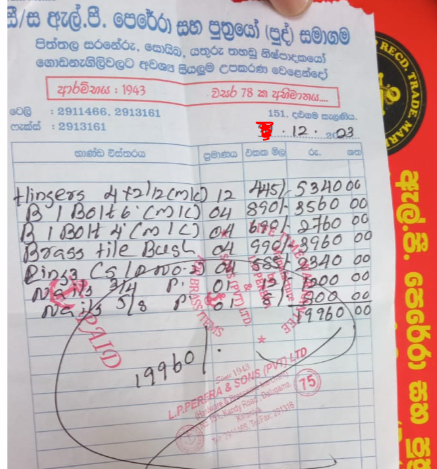 සී/ස ඇල්.පී. පෙරේරා සහ පුත්‍රයෝ (පුද්) සමාගම
පිත්තල සරනේරු, සොයිබ, යතුරු තහඩු නිෂ්පාදකයෝ
ගොඩනැගිලිවලට අවශ්‍ය සියලුම උපකරණ වෙළෙන්දෝ
ආරම්භය : 1943 වසර 78 ක අභිමානය...
ටෙලි : 2911466, 2913161
ෆැක්ස් : 2913161
151,
12 2023
භාණ්ඩ විස්තරය ප්‍රමාණය එකක මිල රු. ශත
Hinges 4x2 1/2 (M/C) 12 445/- 5340 00
B/Bolt 6" (M/C) 04 890/- 3560 00
B/Bolt 4" (M/C) 04 690/- 2760 00
Brass tile Bush 04 990/- 3960 00
Rings 04 585/- 2340 00
Nails 3/4 P. 01 1200 00
Nails 5/8 P. 01 800 00
19960 00
PAID
19960/-
Since 1943
L.P.PERERA & SONS (PVT) LTD
75
RECD. TRADE MARK
ඇල්.පී. පෙරේරා සහ පුත්‍ර